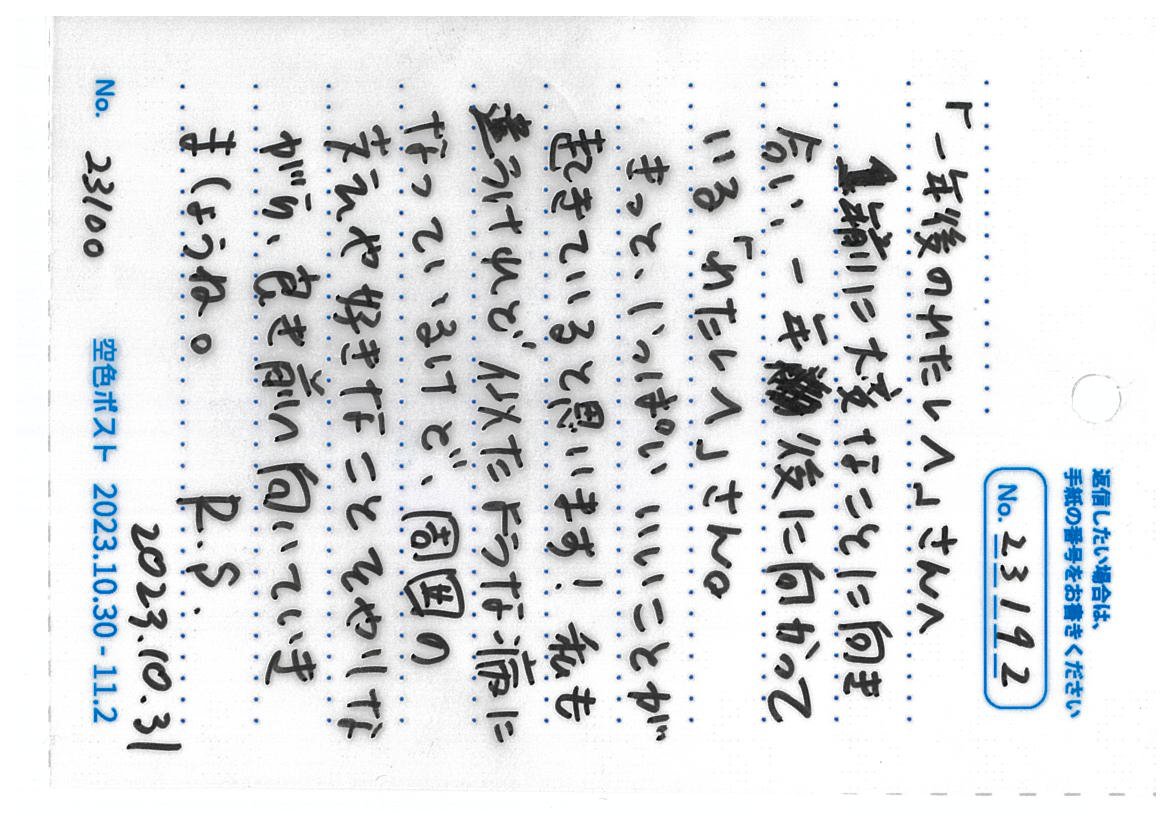 返信したい場合は、
手紙の番号をお書きください
No. 23192
「一年後のわたしへ」さんへ
1年前に大変なことに向き
合い、一年後に向かって
いる「わたしへ」さん。
きっと、いっぱいいいことが
起きていると思います! 私も
違うけれど似たような病に
なっているけど、周囲の
支えや好きなことをやりな
がら、良き前へ向いていき
ましょうね。 R.S.
2023.10.31
No. 23100 空色ポスト 2023.10.30 - 11.2